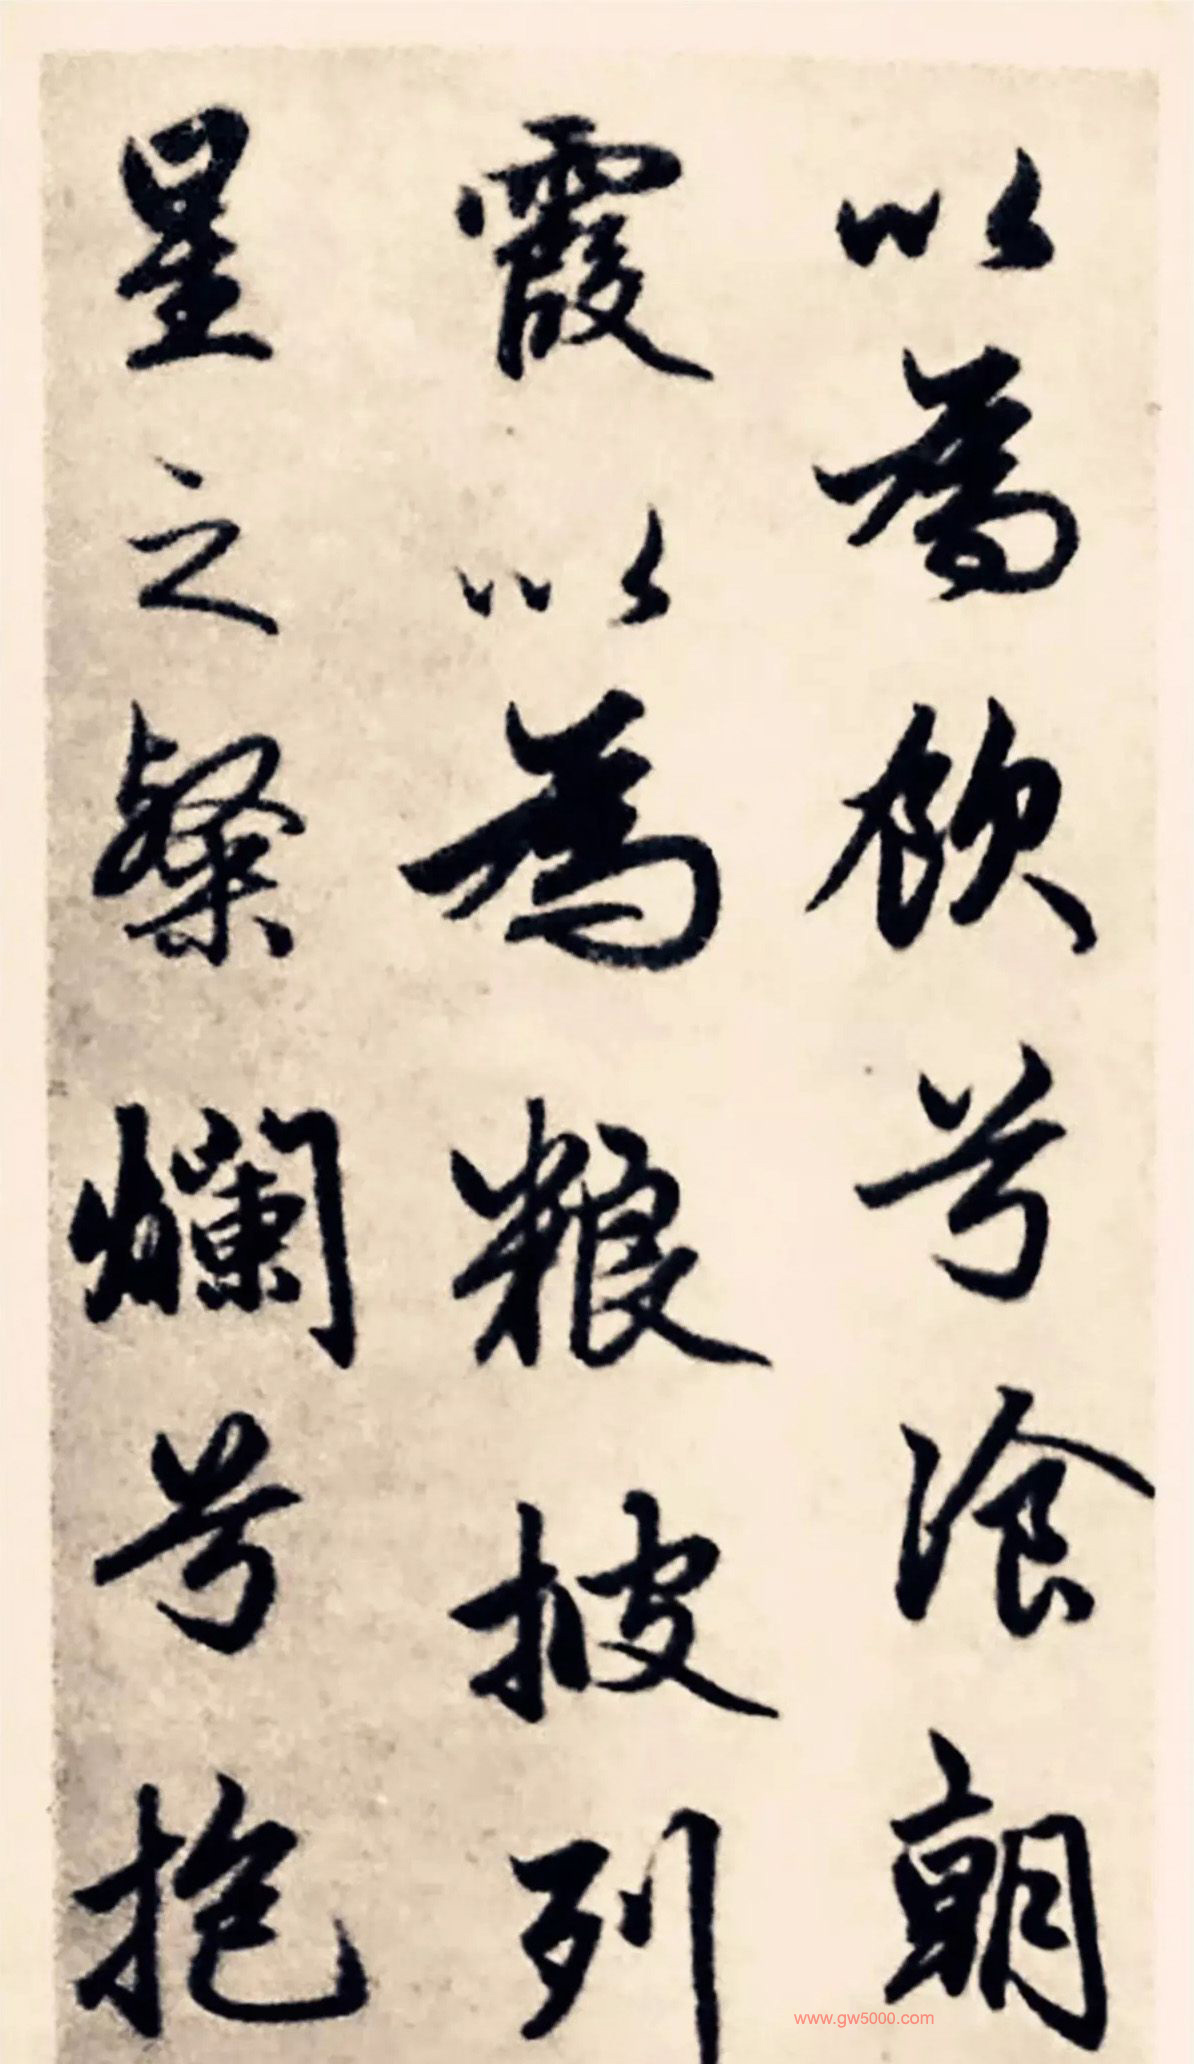 以為飲兮飡朝
霞以為粮披列
星之粲爛兮抱
www.gw5000.com